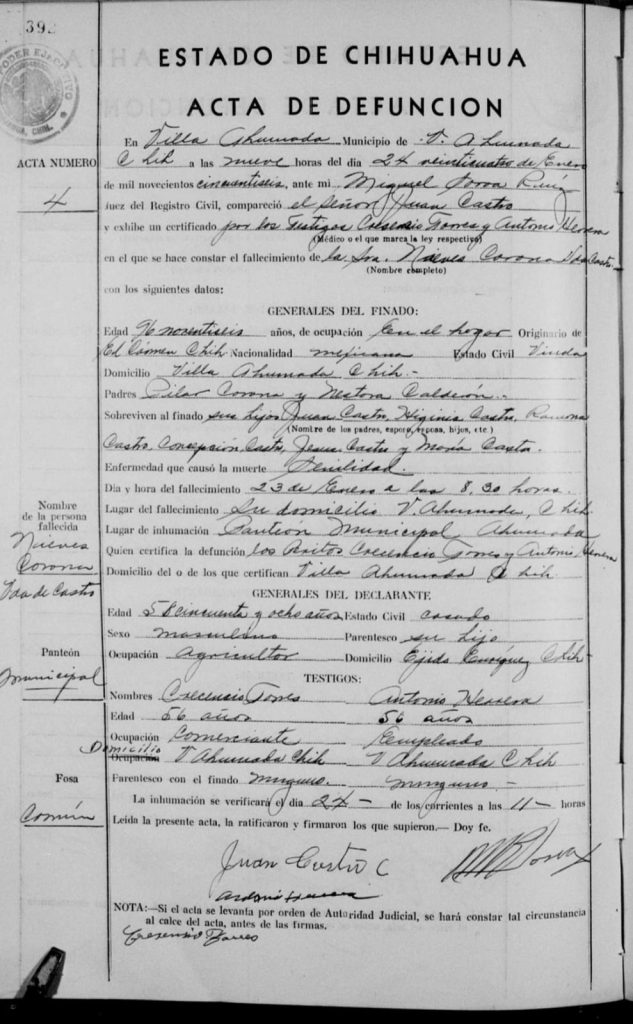 392
PODER EJECUTIVO
CHIH.
ESTADO DE CHIHUAHUA
ACTA DE DEFUNCION
ACTA NUMERO
4
En Villa Ahumada Municipio de V. Ahumada
Chih a las nueve horas del dia 24 veinticuatro de Enero
de mil novecientos cincuentiseis, ante mi Miguel Ruiz
Juez del Registro Civil, compareció el señor Juan Castro
y exhibe un certificado por los Testigos Cresensio Torres y Antonio Herrera
(Médico o el que marca la ley respectivo)
en el que se hace constar el fallecimiento de la Sra. Nieves Corona Vda Castro
(Nombre completo)
con los siguientes datos:
GENERALES DEL FINADO:
Edad 96 noventiseis años, de ocupación En el hogar Originario de
El Cármen Chih Nacionalidad mejicana Estado Civil Viuda
Domicilio Villa Ahumada Chih -
Padres Pilar Corona y Nestora Calderón.-
Sobreviven al finado sus hijos Juan Castro, Higinia Castro, Ramona
(Nombre de los padres, esposo, esposa, hijos, etc.)
Castro, Concepción Castro, Jesus Castro y María Castro.
Enfermedad que causó la muerte Senilidad.
Día y hora del fallecimiento 23 de Enero a las 8.30 horas.
Lugar del fallecimiento Su domicilio V Ahumada, Chih
Lugar de inhumación Panteón Municipal Ahumada
Quien certifica la defunción los Peritos Crecencio Torres y Antonio Herrera
Domicilio del o de los que certifican Villa Ahumada Chih
Nombre
de la persona
fallecida
Nieves
Corona
Vda de Castro
Panteón
Municipal
Fosa
Común
GENERALES DEL DECLARANTE
Edad 58 cincuenta y ocho años Estado Civil casado
Sexo masculino Parentesco su hijo
Ocupación agricultor Domicilio Ejido Enríquez Chih -
TESTIGOS:
Nombres Crecensio Torres Antonio Herrera
Edad 56 años 56 años
Ocupación Comerciante Empleado
Domicilio
Ocupación V Ahumada Chih V Ahumada Chih
Parentesco con el finado ninguno. ninguno -
La inhumación se verificará el día 24 - de los corrientes a las 11 - horas
Leída la presente acta, la ratificaron y firmaron los que supieron.— Doy fe.
Juan Castro C
Antonio Herrera
NOTA:—Si el acta se levanta por orden de Autoridad Judicial, se hará constar tal circunstancia
al calce del acta, antes de las firmas.
Cresensio Torres